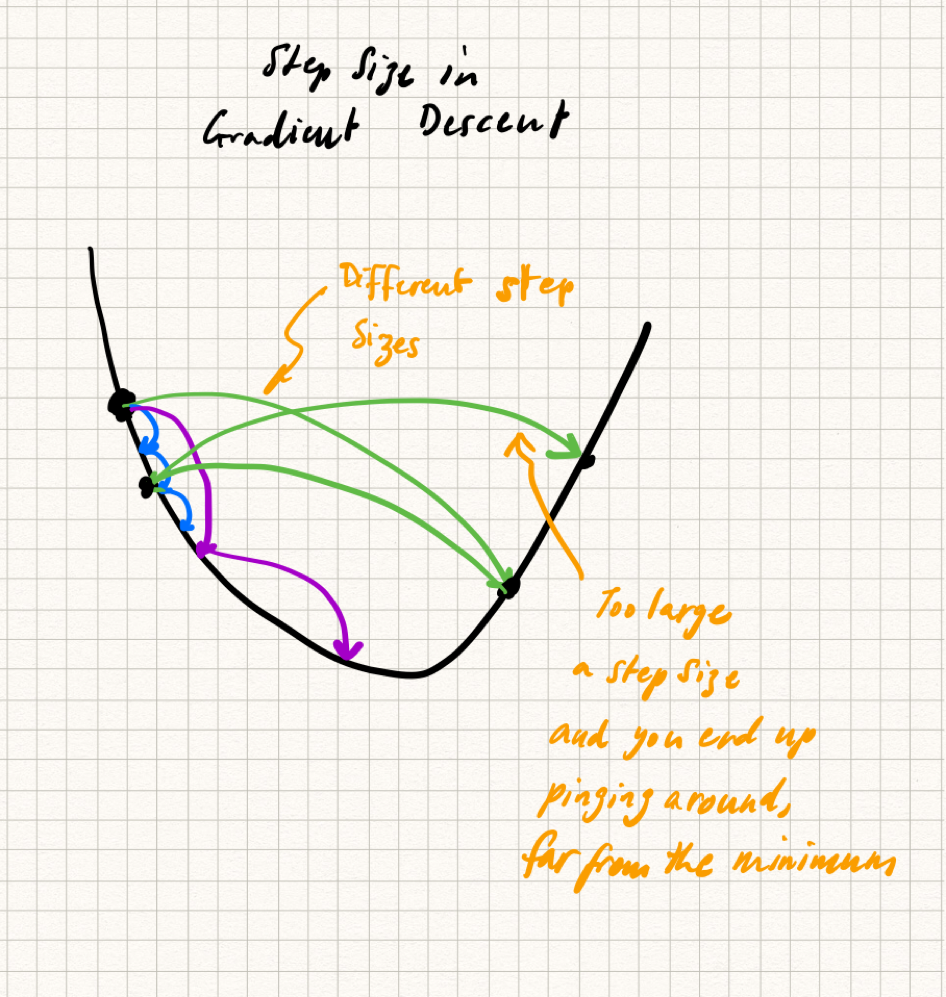 Step Size in
Gradient Descent
Different step
Sizes
Too large
a step size
and you end up
pinging around,
far from the minimum